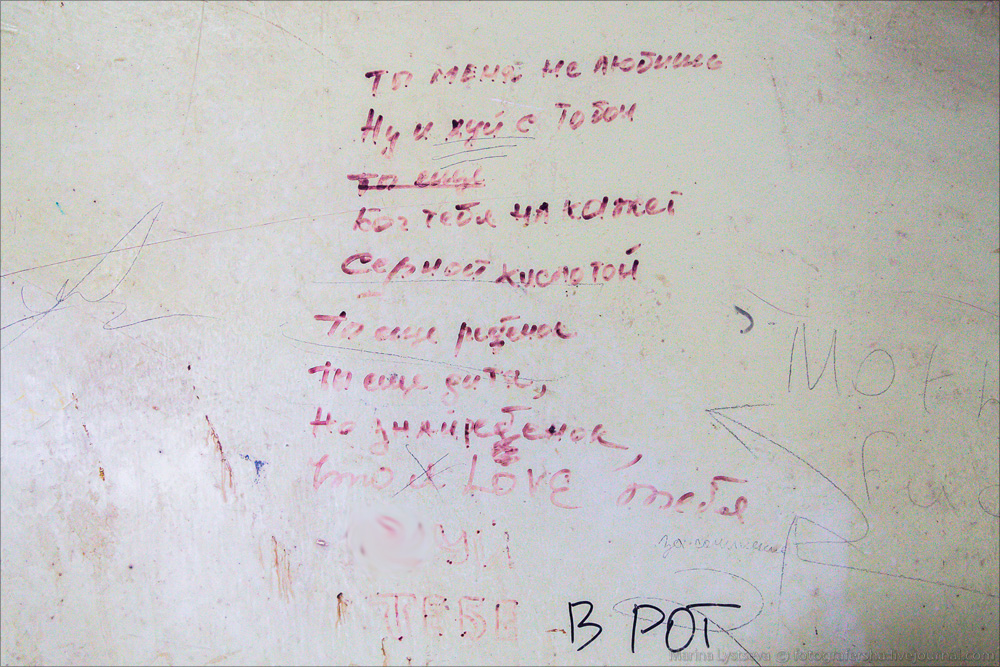 Ты меня не любишь
Ну и хуй с тобой
ты еще
Бог тебя накажет
Серной кислотой
ты еще ребенок
ты еще дитя,
но знай ребенок,
что я Love тебя
ТЕБЕ В РОТ
Marina Lystseva © fotografersha.livejournal.com